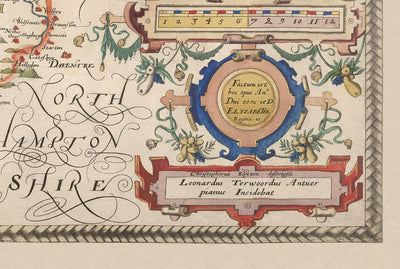 1 2 3 4 5 6 7 8 9 10 11 12
Staverton
DAVENTRE
NORTH
HAMPTON
SHIRE
Factum est
hoc opus Anº
Dni 1576 et D.
ELYZABETHE
Reginæ 18
Christophorus Saxton descripsit
Leonardus Terwoordus Antuer
pianus Incidebat